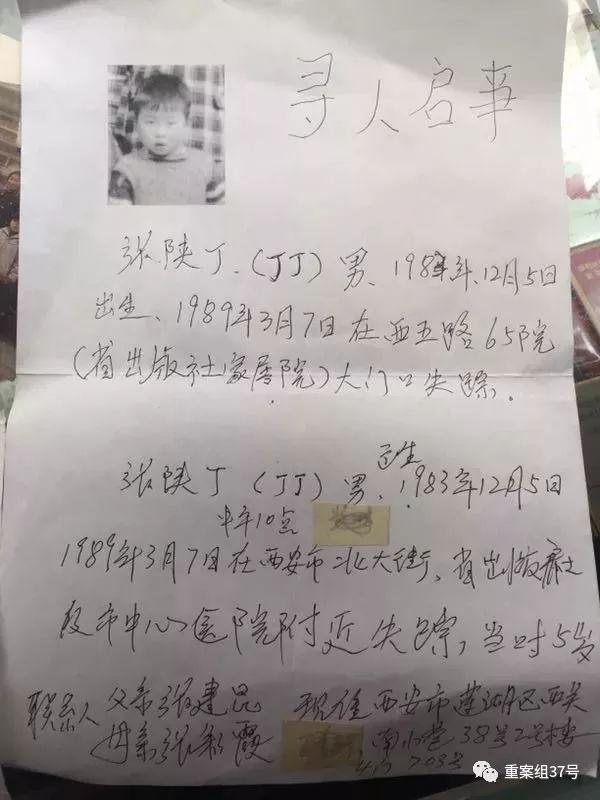 寻人启事
张陕丁、(丁丁)男、1983年、12月5日
出生、1989年3月7日在西五路65院
(省出版社家属院)大门口失踪.
出生
张陕丁(丁丁)男、1983年12月5日
10点
1989年3月7日在西安市北大街、省出版社
及市中心医院附近失踪,当时5岁
联系人 父亲张建昆 现住西安市莲湖区西关
母亲张彩霞 南小巷38号2号楼
703号
重案组37号